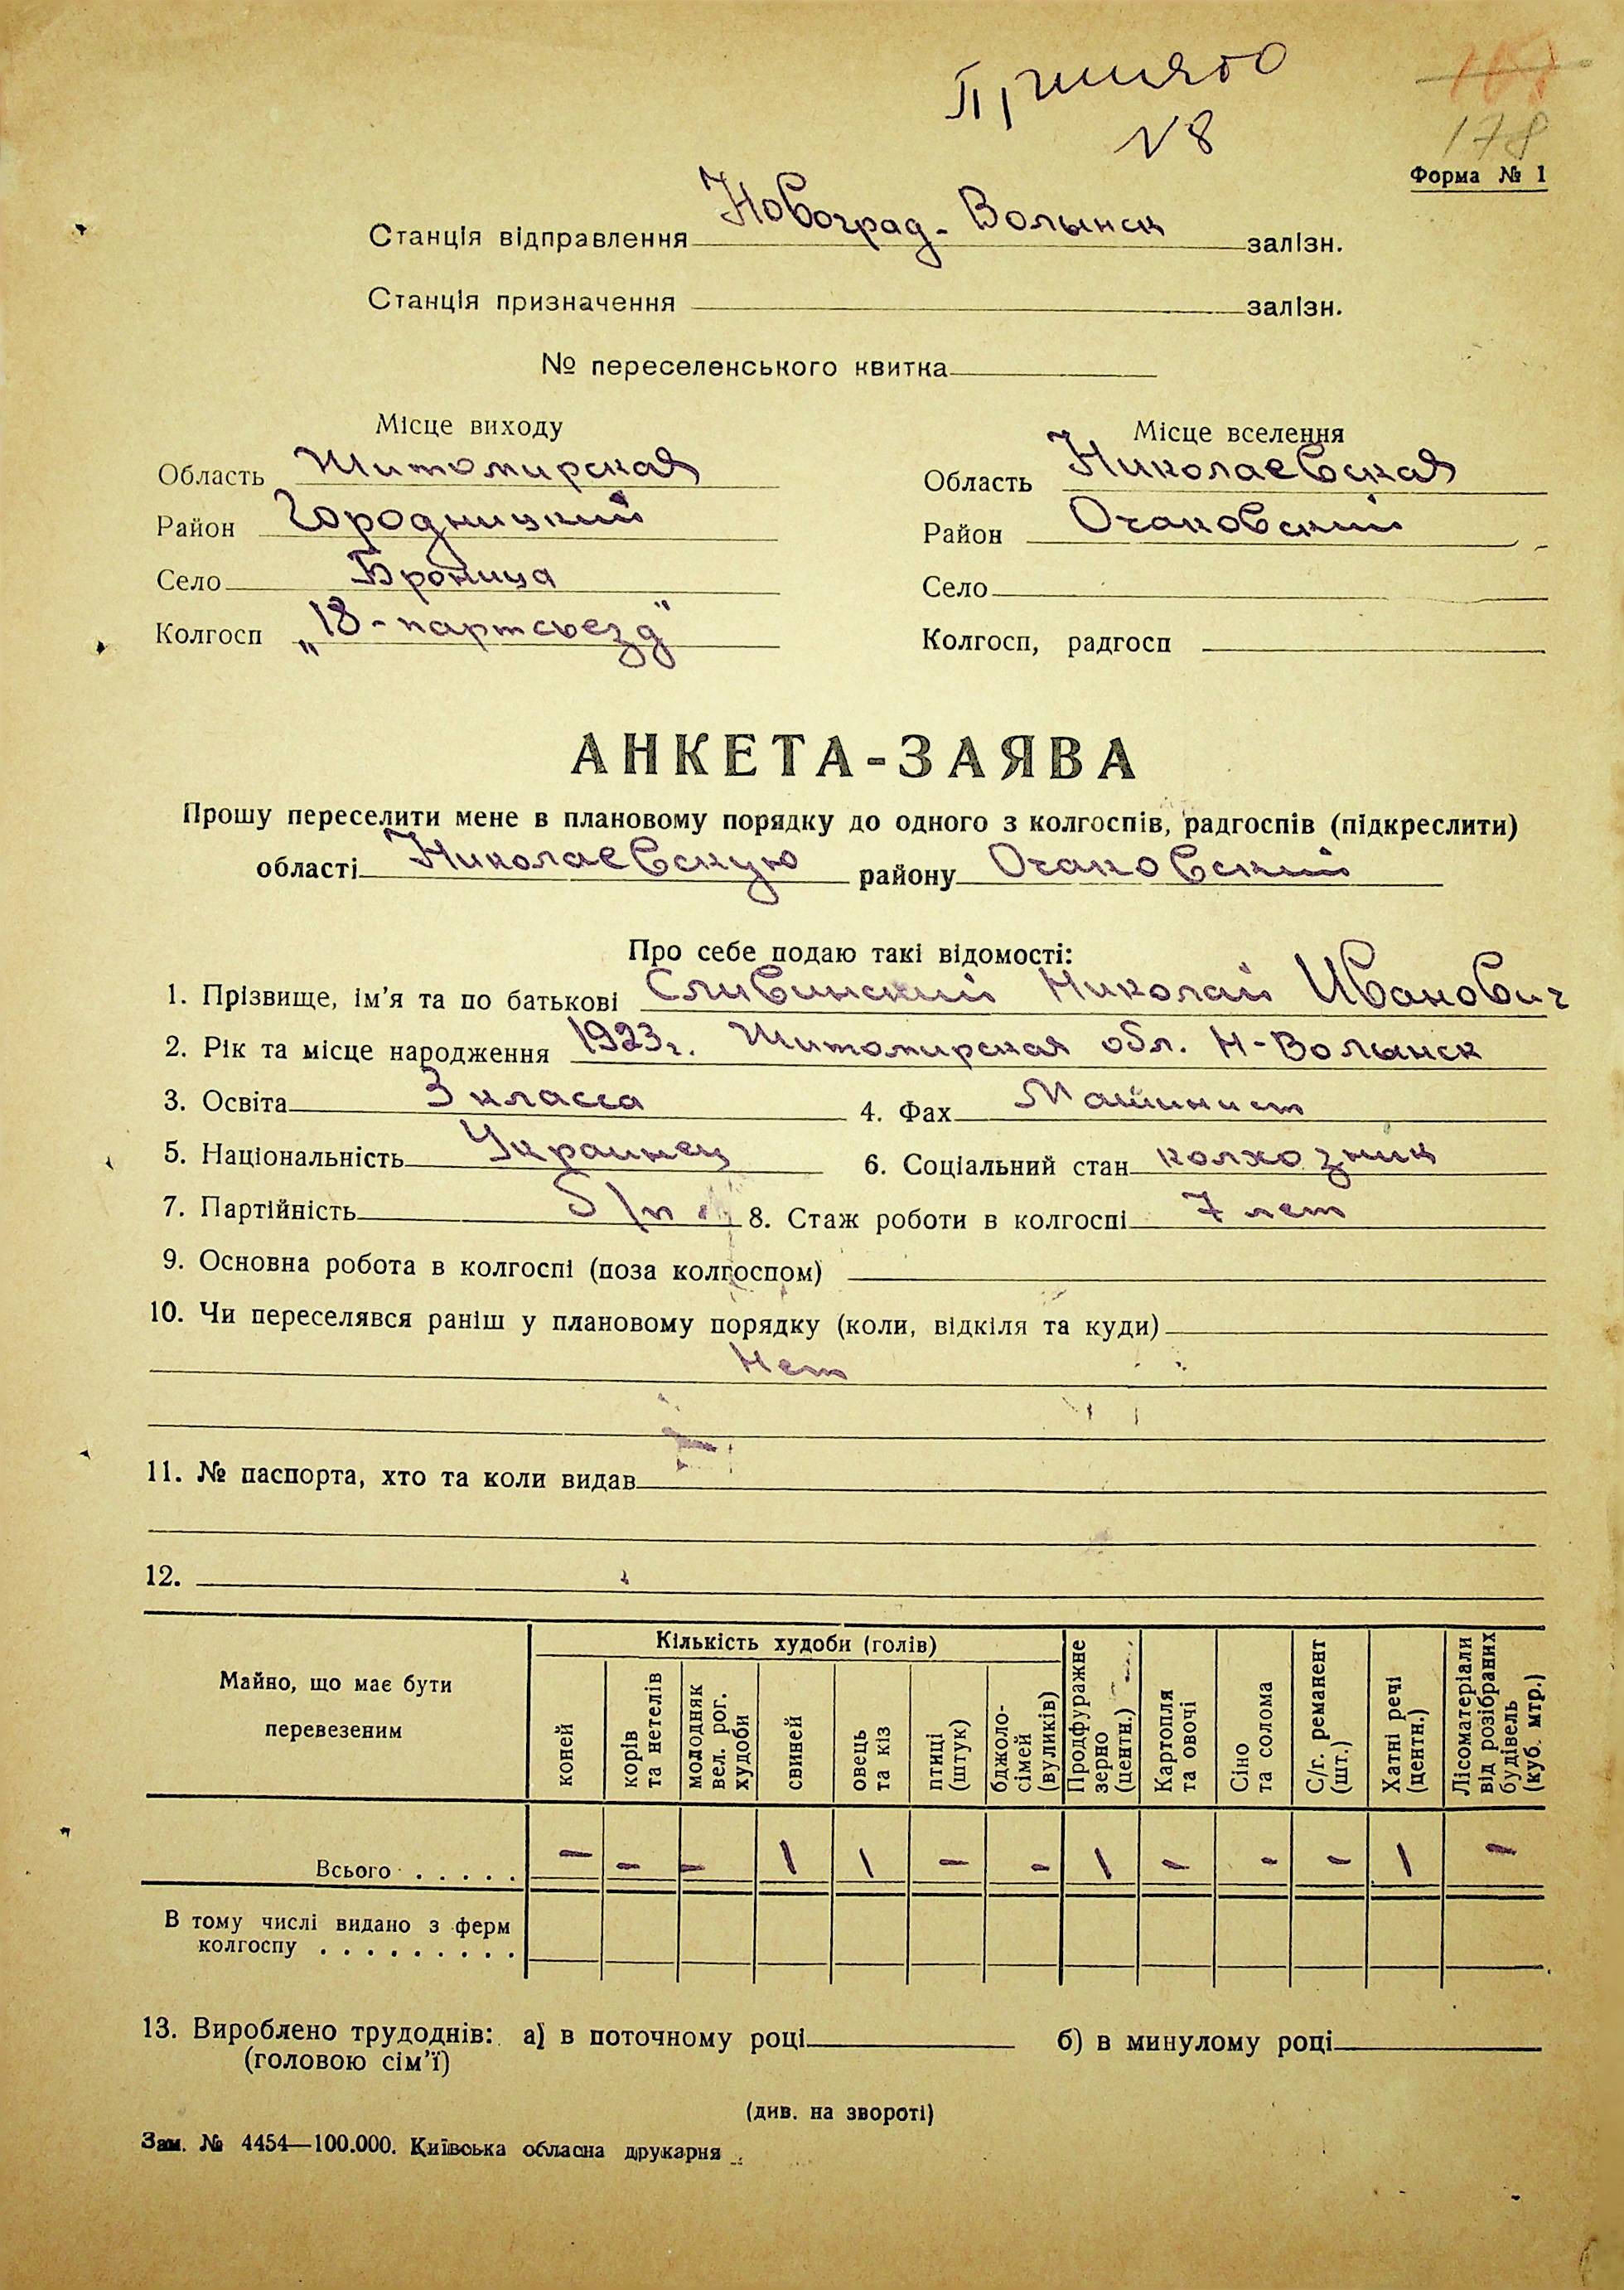 Принято
№8
178
Форма № 1
Станція відправлення Новоград-Волынск залізн.
Станція призначення залізн.
№ переселенського квитка
Місце виходу
Область Житомирская
Район Городницкий
Село Броница
Колгосп „18-партсъезд"
Місце вселення
Область Николаевская
Район Очаковский
Село
Колгосп, радгосп
АНКЕТА-ЗАЯВА
Прошу переселити мене в плановому порядку до одного з колгоспів, радгоспів (підкреслити)
області Николаевскую району Очаковский
Про себе подаю такі відомості:
1. Прізвище, ім'я та по батькові Сливинский Николай Иванович
2. Рік та місце народження 1923г. Житомирская обл. Н-Волынск
3. Освіта 3 класса 4. Фах Машинист
5. Національність Украинец 6. Соціальний стан колхозник
7. Партійність б/п 8. Стаж роботи в колгоспі 7 лет
9. Основна робота в колгоспі (поза колгоспом)
10. Чи переселявся раніш у плановому порядку (коли, відкіля та куди)
Нет
11. № паспорта, хто та коли видав
12.
Майно, що має бути перевезеним
Кількість худоби (голів)
коней
корів та нетелів
молодняк вел. рог. худоби
свиней
овець та кіз
птиці (штук)
бджоло-сімей (вуликів)
Продфуражне зерно (центн.)
Картопля та овочі
Сіно та солома
С/г. реманент (шт.)
Хатні речі (центн.)
Лісоматеріали від розібраних будівель (куб. мтр.)
Всього . . . . . – – – 1 1 – – 1 – – – 1 –
В тому числі видано з ферм
колгоспу . . . . . . . . .
13. Вироблено трудоднів: а) в поточному році б) в минулому році
(головою сім'ї)
(див. на звороті)
Зам. № 4454—100.000. Київська обласна друкарня